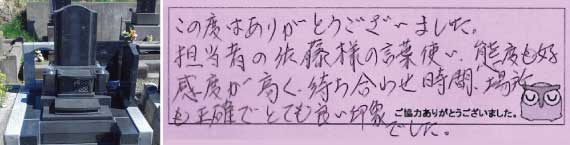 この度はありがとうございました。
担当者の佐藤様の言葉使い、態度も好
感度が高く、待ち合わせ時間、場所
も正確でとても良い印象
でした。
ご協力ありがとうございました。